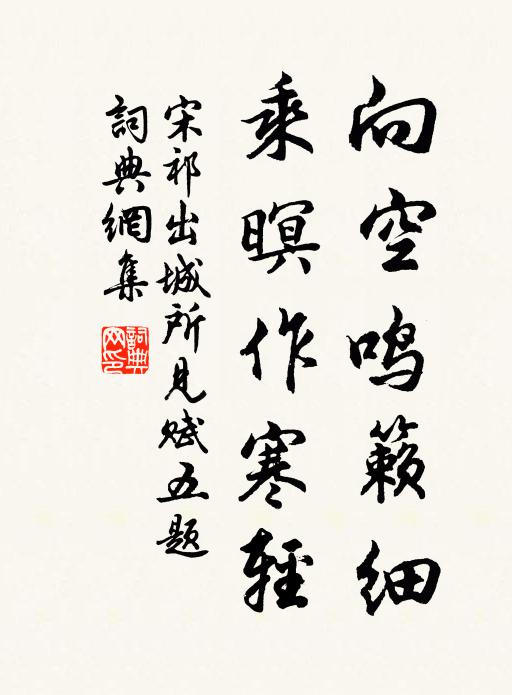 向空鸣籟细
乘暝作寒輕
宋祁出城所見赋五题
詞典網集
詞典网印